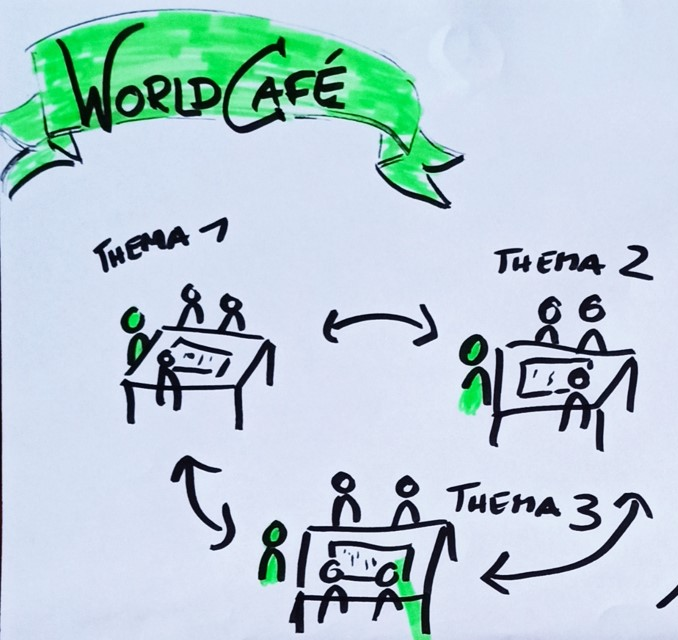 WORLD CAFÉ
THEMA 1
THEMA 2
THEMA 3